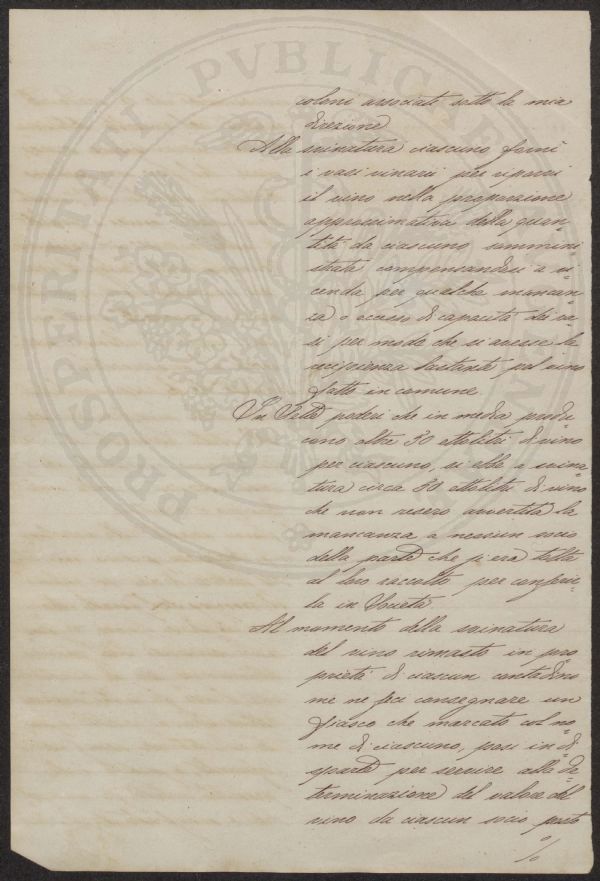 PROSPERITATI PVBLICAE
coloni associati sotto la mia
direzione
Alla svinatura ciascuno fornì
i vasi vinari per riporvi
il vino nella proporzione
approssimativa della quan=
tità da ciascuno sommini
strata compensandosi a vi=
cenda per qualche mancan=
za o eccesso di capacità dei va=
si per modo che si avesse la
recipienza bastante pel vino
fatto in comune
In sette poderi che in media produ
cono oltre 30 ettolitri di vino
per ciascuno, si ebbe a svina=
tura circa 30 ettolitri di vino
che non resero avvertita la
mancanza a nessun socio
della parte che s'era tolta
al loro raccolto per conferir=
la in Società.
Al momento della svinatura
del vino rimasto in pro
prietà di ciascun contadino
me ne feci consegnare un
fiasco che marcato col no=
me di ciascuno, posi in di
sparte per servire alla de
terminazione del valore del
vino da ciascun socio posto
%